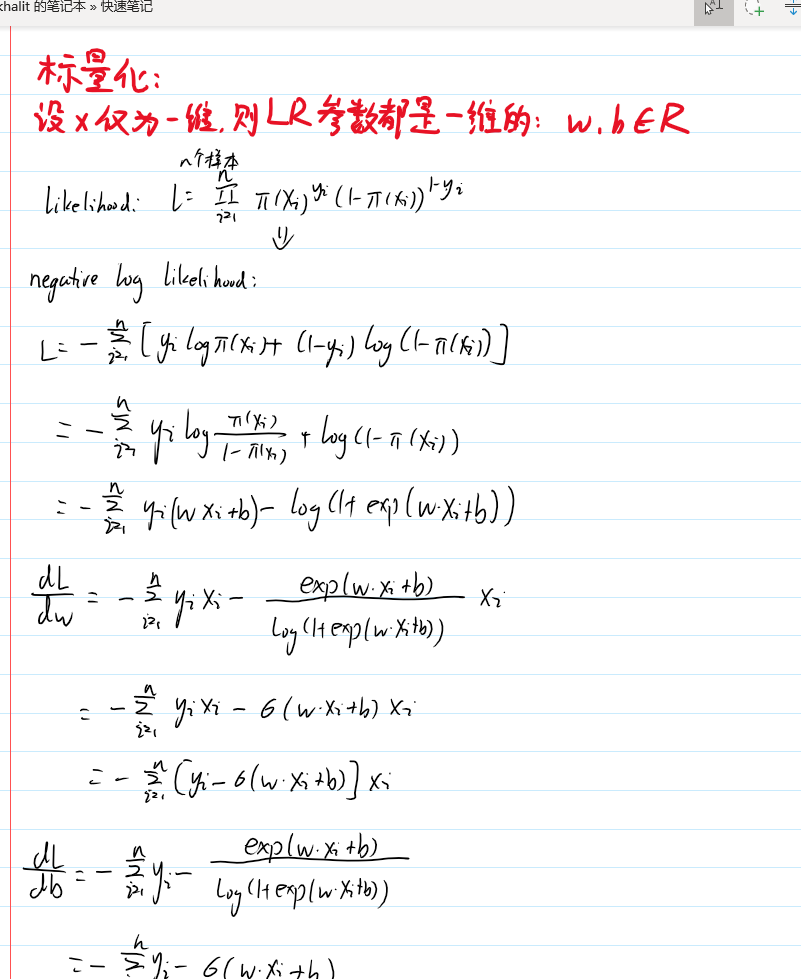 khalit 的笔记本 » 快速笔记
标量化:
设 x 仅为一维, 则 LR 参数都是一维的: w, b ∈ R
n个样本
Likelihood: L = ∏_{i=1}^{n} π(xi)^{yi} (1-π(xi))^{1-yi}
⇓
negative log likelihood:
L = - ∑_{i=1}^{n} [yi log π(xi) + (1-yi) log (1-π(xi))]
= - ∑_{i=1}^{n} yi log π(xi)/(1-π(xi)) + log(1-π(xi))
= - ∑_{i=1}^{n} yi(w xi+b) - log(1+ exp(w·xi+b))
dL/dw = - ∑_{i=1}^{n} yi xi - exp(w·xi+b)/log(1+exp(w·xi+b)) xi
= - ∑_{i=1}^{n} yi xi - σ(w·xi+b) xi
= - ∑_{i=1}^{n} (yi - σ(w·xi+b)] xi
dL/db = - ∑_{i=1}^{n} yi - exp(w·xi+b)/log(1+exp(w·xi+b))
= - ∑^{n} yi - σ(w·xi+b)